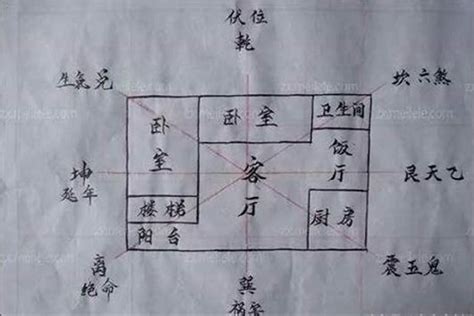 伏位
乾
生氣兑
坎六煞
卧室
卧室
卫生间
饭厅
坤
延年
客厅
艮天乙
楼梯
厨房
阳台
离
绝命
巽
祸害
震五鬼